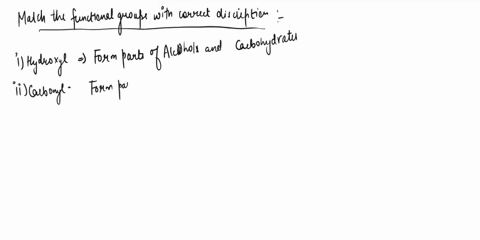 Match the functional groups with correct disciption :-
i) Hydroxyl => Form parts of Alcohols and Carbohydrates
ii) Carbonyl - Form pa